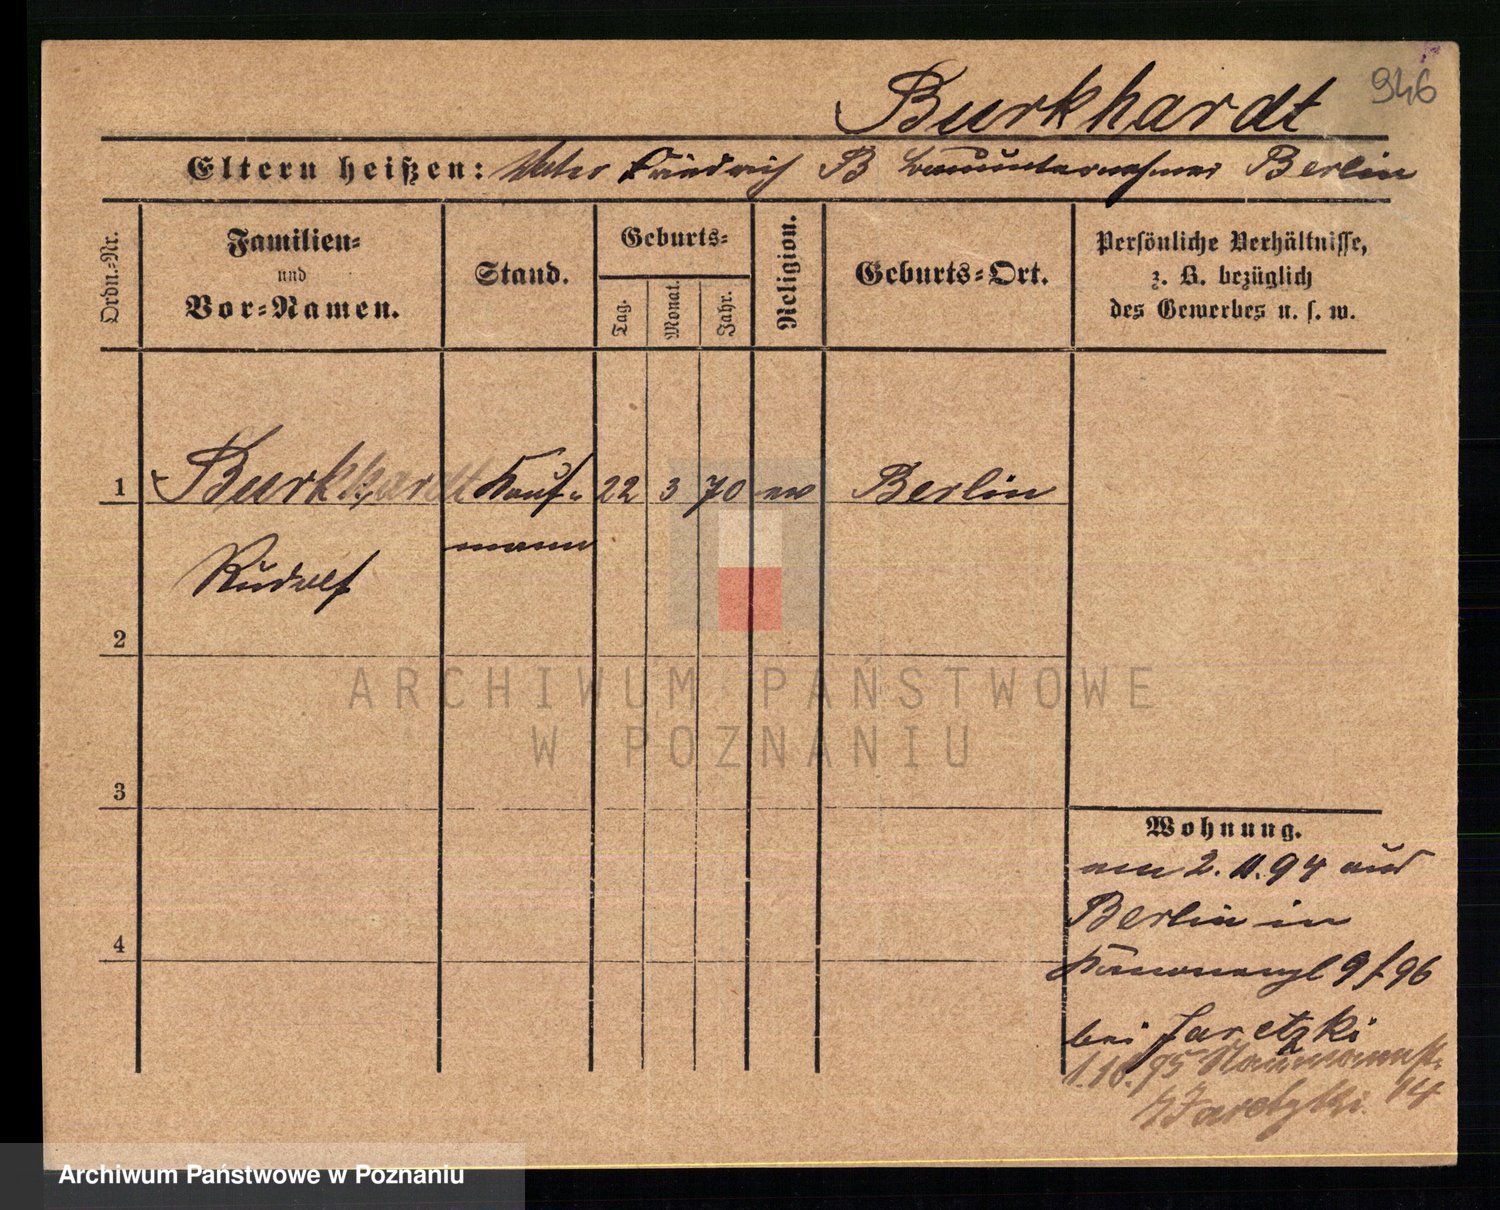 946
Burkhardt
Eltern heißen: Vater Friedrich B Bauunternehmer Berlin
Ordn.-Nr.
Familien-
und
Vor-Namen.
Stand.
Geburts-
Tag.
Monat.
Jahr.
Religion.
Geburts-Ort.
Persönliche Verhältnisse,
z. B. bezüglich
des Gewerbes u. s. w.
1 Burkhardt Kauf- 22 3 70 ev Berlin
mann
Rudolf
2
ARCHIWUM PAŃSTWOWE
W POZNANIU
3
Wohnung.
am 2. 11. 94 aus
Berlin in
4
Kanonenpl 9 f 96
bei Jaretzki
1.10.95 Naumannstr.
b Jaretzki. 14
Archiwum Państwowe w Poznaniu